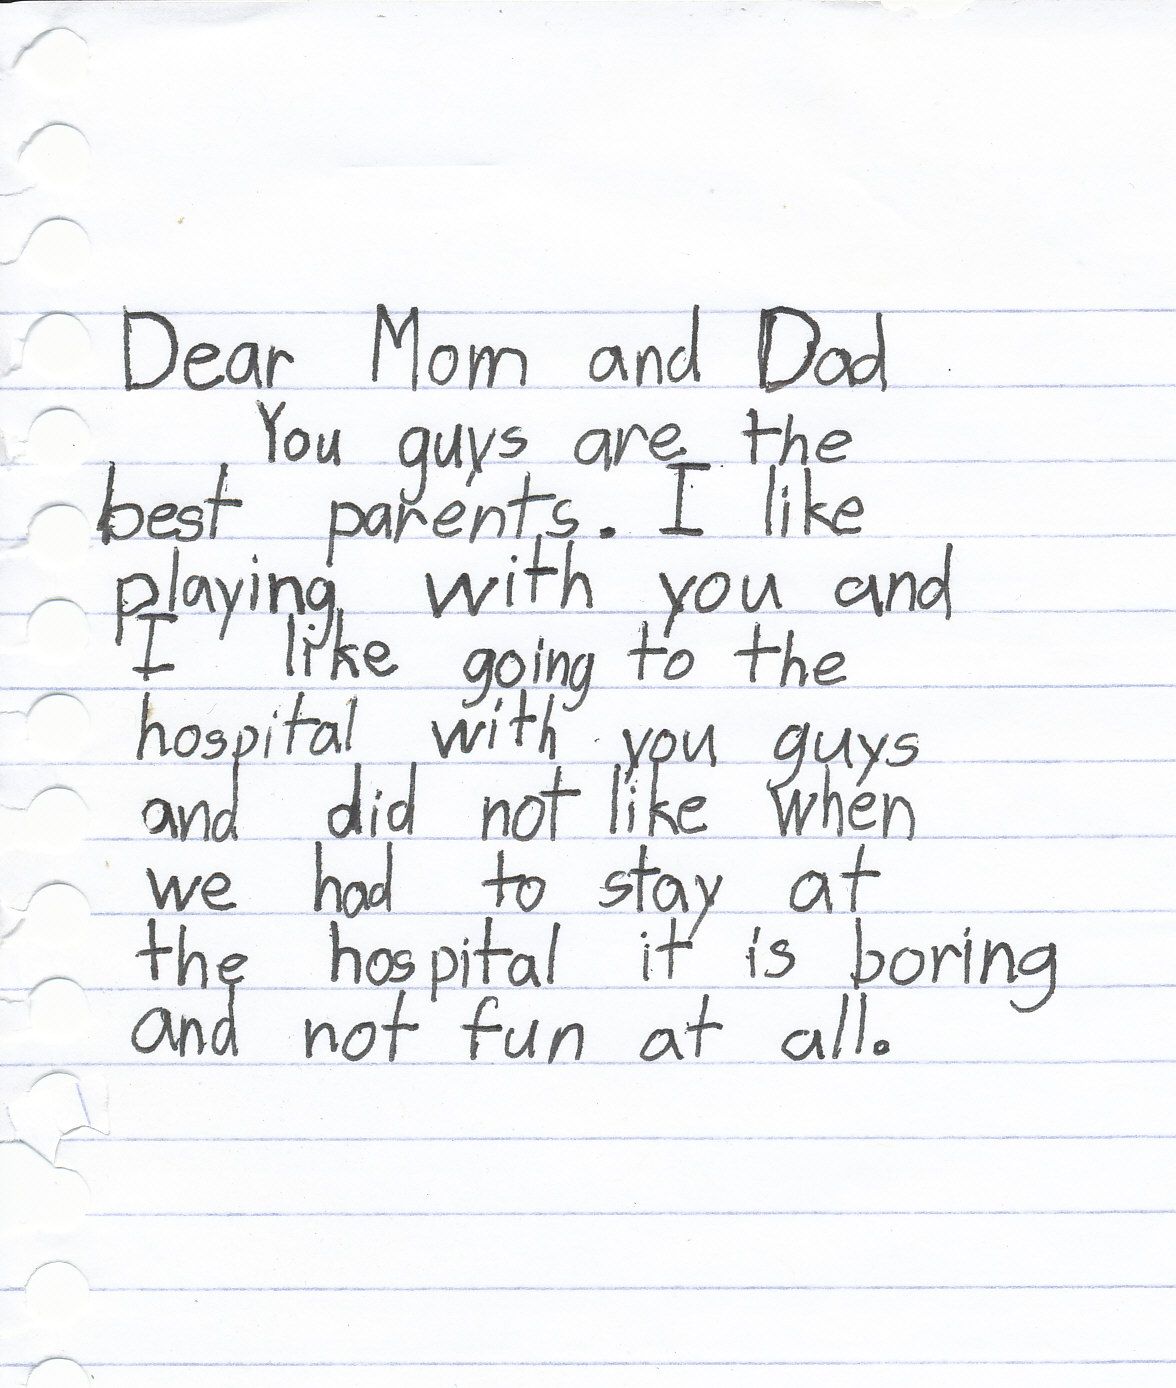 Dear Mom and Dad
You guys are the
best parents. I like
playing with you and
I like going to the
hospital with you guys
and did not like when
we had to stay at
the hospital it is boring
and not fun at all.